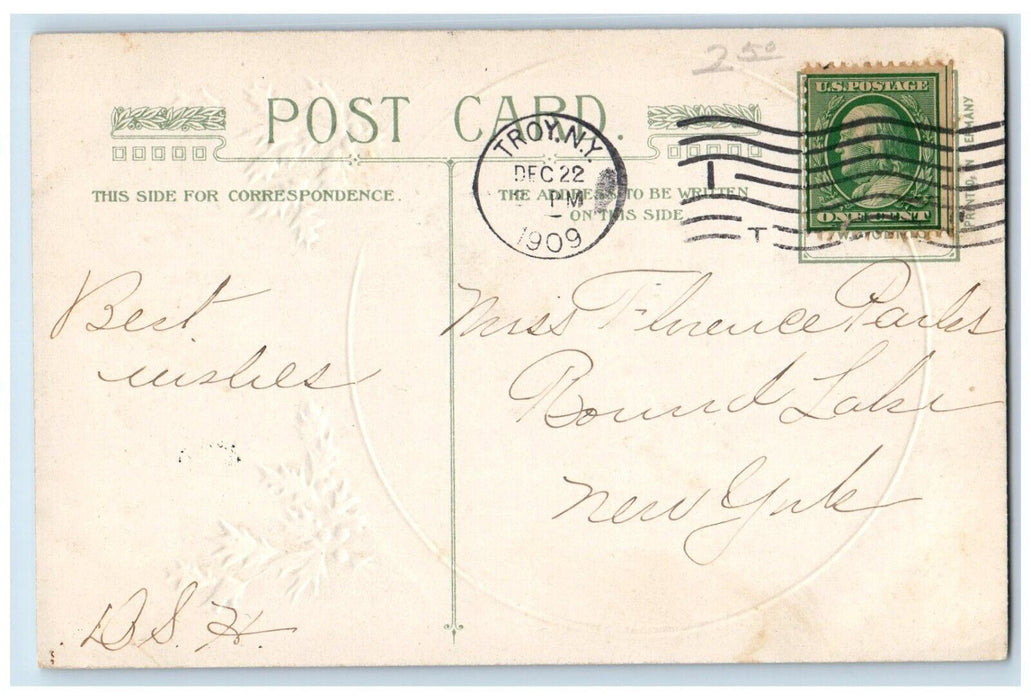 2 50
POST CARD.
U.S. POSTAGE
ONE CENT
PRINTED IN GERMANY
TROY, N.Y.
DEC 22
PM
1909
THIS SIDE FOR CORRESPONDENCE.
THE ADDRESS TO BE WRITTEN
ON THIS SIDE
Best
wishes
D.S.H.
Miss Florence Parks
Round Lake
New York